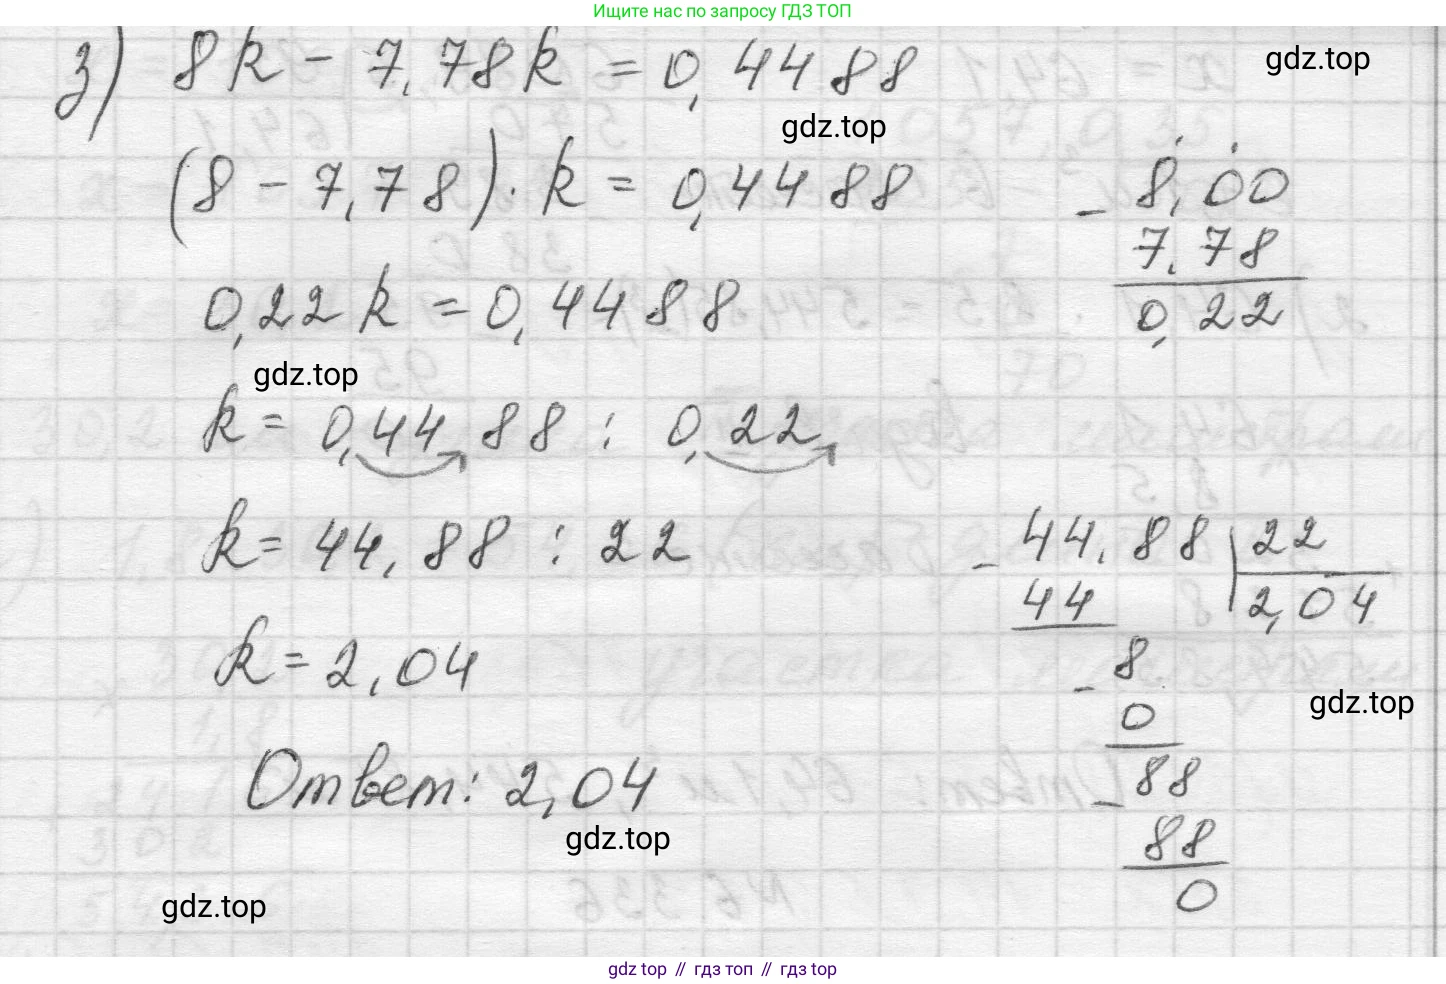 Ищите нас по запросу ГДЗ ТОП
з) 8k - 7,78k = 0,4488
gdz.top
gdz.top
(8 - 7,78) · k = 0,4488
- 8,00
7,78
0,22
0,22k = 0,4488
gdz.top
k = 0,4488 : 0,22
k = 44,88 : 22
- 44,88 | 22
44 2,04
- 8
0
- 88
88
0
k = 2,04
gdz.top
Ответ: 2,04
gdz.top
gdz.top
gdz top // гдз топ // гдз top